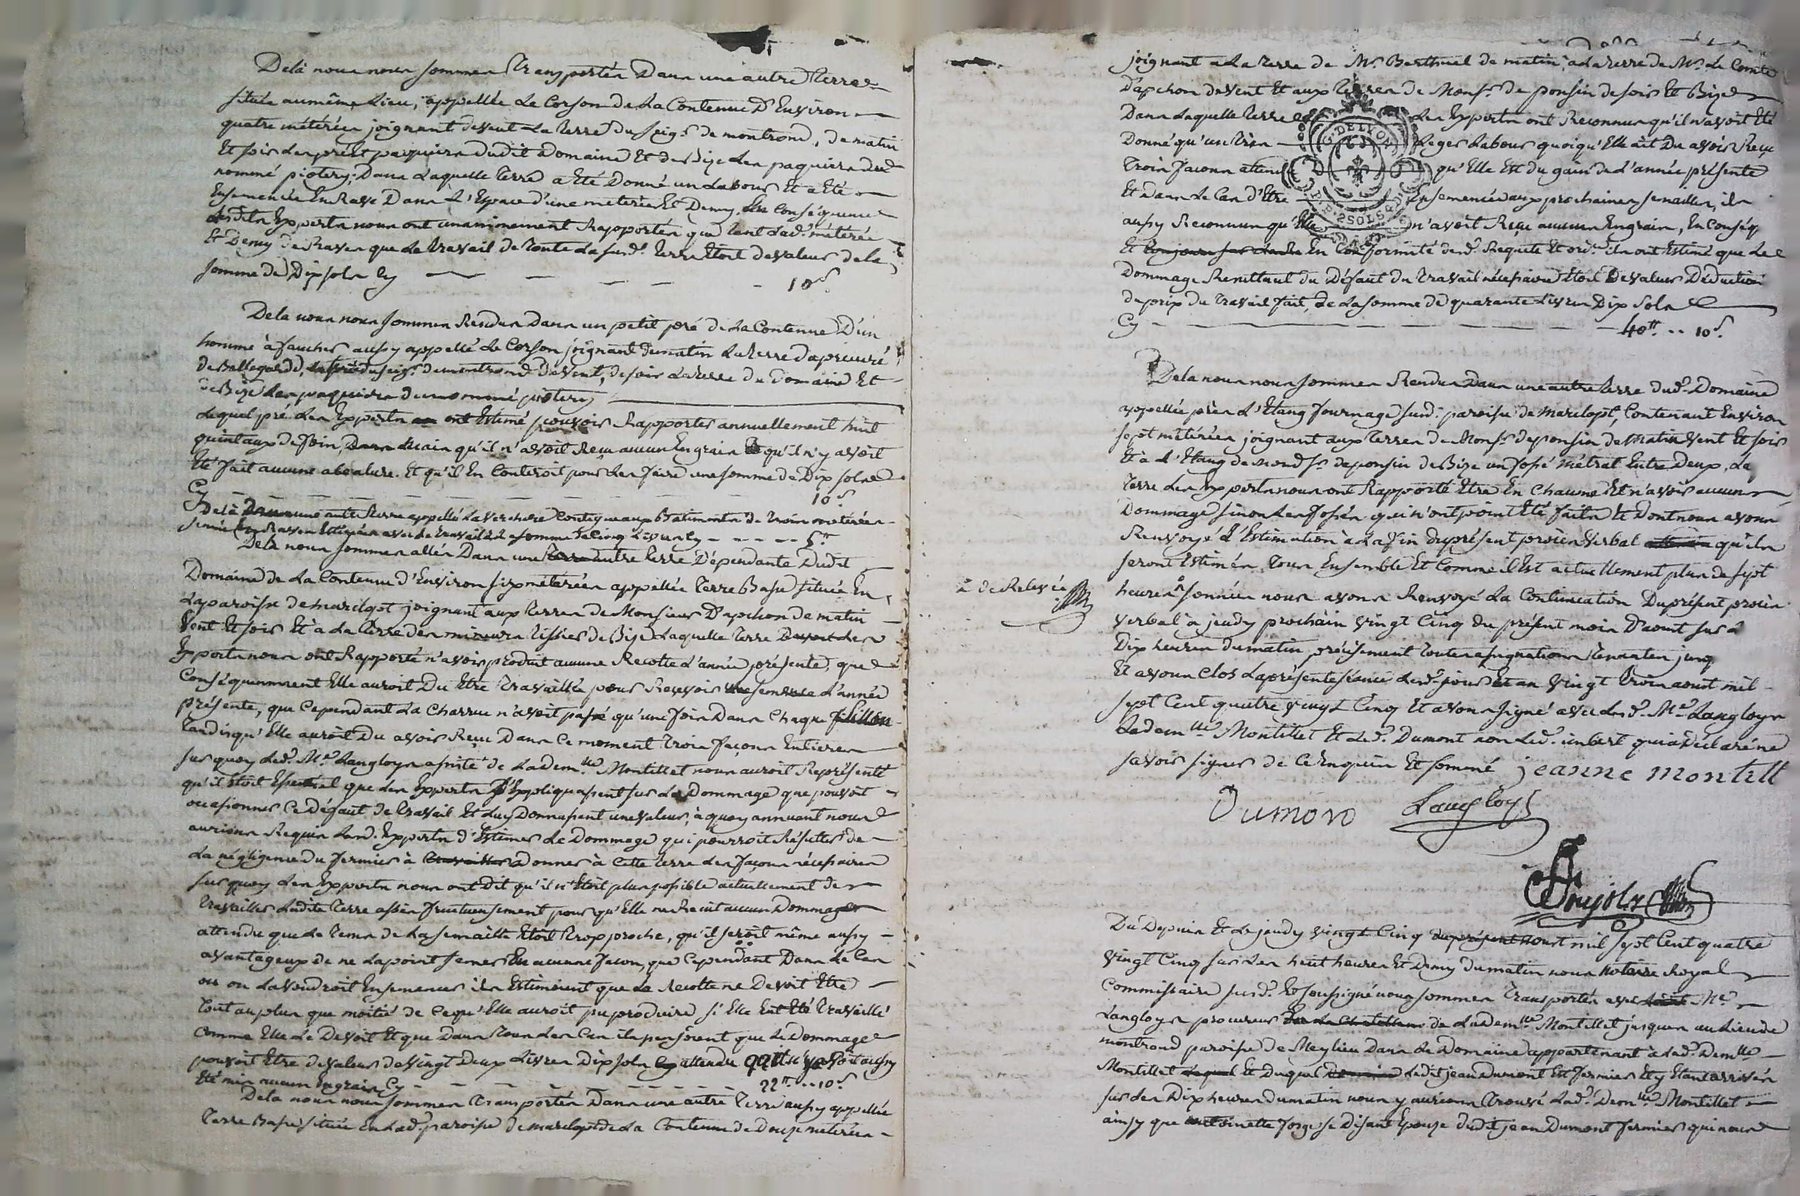 Delà nous nous sommes transportés dans une autre terre
située au même lieu, appellée Le Corson de La Contenue D'Environ
quatre métérées joignant de vent La terre du Seigr. de montrond, de matin
Et soir Les prés et paquiers dudit domaine Et de Bize Les paquiers du
nommé piotery; Dans Laquelle terre a Eté Donné un Labour Et a Eté
Ensemencée En Raves Dans L'Espace d'une métérée Et Demy. En Conséquence
Lesdits Experts nous ont unanimement Rapportés que tant Lad. métérée
Et Demy de Raves que Le travail de toute La susd. terre Etoit de valeur de la
somme de Dix sols Cy 10s.
Delà nous nous sommes Rendus Dans un petit pré de La Contenue D'un
homme à faucher aussy appellé Le Corson joignant de matin La terre du prieuré
de Bellegarde, du seigr. de montrond de vent, de soir La terre du domaine Et
de Bize Les paquiers du nommé piotery
Lequel pré Les Experts ont Estimé pouvoir Rapporter annuellement huit
quintaux de foin, mais qu'il n'avoit Reçu aucun Engrais qu'il n'y avoit
Eté fait aucune abealure. Et qu'il En Conteroit pour Les faire une somme de Dix sols
Cy 10s.
Delà Dans une autre terre appellée La verchere Contigue aux Batiments de trois métérées
semée En Raves Estimée avec Le travail à La somme de Cinq Livres Cy 5tt
Delà nous sommes allés Dans une autre terre Dépendante Dudit
Domaine de La Contenue d'Environ six métérées appellée Terre Basse située En
La paroisse de marclopt joignant aux terres de Monsieur D'apchon de matin
vent Et soir Et à La terre des mineurs tissier de Bize Laquelle terre Les
Experts nous ont Rapporté n'avoir produit aucune Recolte L'année présente, que
Conséquemment Elle auroit Du Etre travaillée pour Recevoir semence L'année
présente, que Cependant La Charrue n'avoit passé qu'une fois Dans Chaque sillon
tandis qu'Elle auroit Du avoir Reçu Dans Ce moment trois façons Entieres
sur quoy Led. Me. Langloys assisté de Lademlle Montillet nous auroit Représenté
qu'il Etoit Essentiel que Les Experts s'Expliquassent sur Le Dommage que pouvoit
occasionner Ce Défaut de travail Et Luy Donnassent une valeur; à quoy annuant nous
aurions Requis Lesd. Experts d'Estimer Le Dommage qui pourroit Résulter de
La négligence du fermier à Donner à Cette terre Les façons nécessaires
sur quoy Les Experts nous ont Dit qu'il n'Etoit plus possible actuellement de
travailler Ladite terre assés fructueusement pour qu'Elle ne Reçut aucun Dommage
attendu que Le tems de La semaille Etoit trop proche, qu'il seroit même aussy
avantageux de ne La point semer En aucune façon, que Cependant Dans Le Cas
où on La voudroit Ensemencer ils Estimoient que La Recolte ne Devoit Etre
tout au plus que moitié de Ce qu'Elle auroit pu produire, si Elle Eut Eté travaillé
Comme Elle Le Devoit Et que Dans tous Les Cas ils pensoient que Le Dommage
pouvoit Etre de valeur de vingt Deux Livres Dix sols attendu qu'il n'y a aussy
Eté mis aucun Engrais Cy 22tt..10s.
Delà nous nous sommes transportés Dans une autre terre aussy appellée
Terre Basse située En Lad. paroisse de marclopt de La Contenue de Douze métérées
joignant à La terre de Mr. Berthuel de matin, à La terre de Mr. Le Comte
D'apchon de vent Et aux terres de Monsr. de ponsin de soir Et Bize
Dans Laquelle terre Les Experts ont Reconnu qu'il n'avoit Eté
Donné qu'un très Leger Labour quoiqu'Elle ait Du avoir Reçu
trois façons attendu qu'Elle Est du gain de L'année présente
Et dans Le Cas d'Etre Ensemencée aux prochaines semailles, ils
aussy Reconnu qu'Elle n'avoit Reçu aucun Engrais, En Conséq.
Et En Conformité de nd. Requete Et ord. ils ont Estimé que Le
Dommage Resultant du Défaut du travail nécessaire Etoit De valeur Déduction
du prix du travail fait, de La somme de quarante Livres Dix sols
Cy 40tt..10s.
Delà nous nous sommes Rendus Dans une autre terre dud. Domaine
appellée près L'Etang Fournage susd. paroisse de marclopt, Contenant Environ
sept métérées joignant aux terres de Monsr. de ponsin de matin vent Et soir
Et à L'Etang de mond. Sr. de ponsin de Bize un fossé métral Entre Deux, La
terre Les Experts nous ont Rapporté Etre En Chaume Et n'avoir aucun
Dommage sinon Les fossés qui n'ont point Eté faits Et Dont nous avons
Renvoyé L'Estimation à La fin du présent procès verbal qu'ils
seront Estimés, tous Ensemble Et Comme il Est actuellement plus de sept
heures sonnées nous avons Renvoyé La Continuation Du présent procès
2 de Relevée
verbal à jeudy prochain vingt Cinq du present mois D'aoust sur Les
Dix heures du matin précisement toutes assignations tenantes jusq
Et avons Clos La présente séance Led. jour Et an vingt trois aoust mil
sept Cent quatre vingt Cinq Et avons signé avec Led. Me. Langloys
Lademlle Montillet Et Led. Dumont non Led. imbert qui a Déclaré ne
savoir signer de Ce Enquis Et sommé jeanne montillt
Dumono Langloys
Poujols
Du Depuis Et Le jeudy vingt Cinq aoust mil sept Cent quatre
vingt Cinq sur Les huit heures Et Demy du matin nous notaire Royal
Commissaire susd. Et soussigné nous sommes transportés avec Me.
Langloys procureur de Lademlle Montillet jusques au Lieu de
montrond paroisse de Meylieu Dans Le Domaine appartenant à Lad. Demlle
Montillet Et Duquel Ledit jean Dumont Est fermier Et y Etant arrivés
sur Les Dix heures du matin nous y aurions trouvé Lad. Demlle Montillet
ainsy que antoinette forge se Disant Epouze dudit jean Dumont fermier qui nous